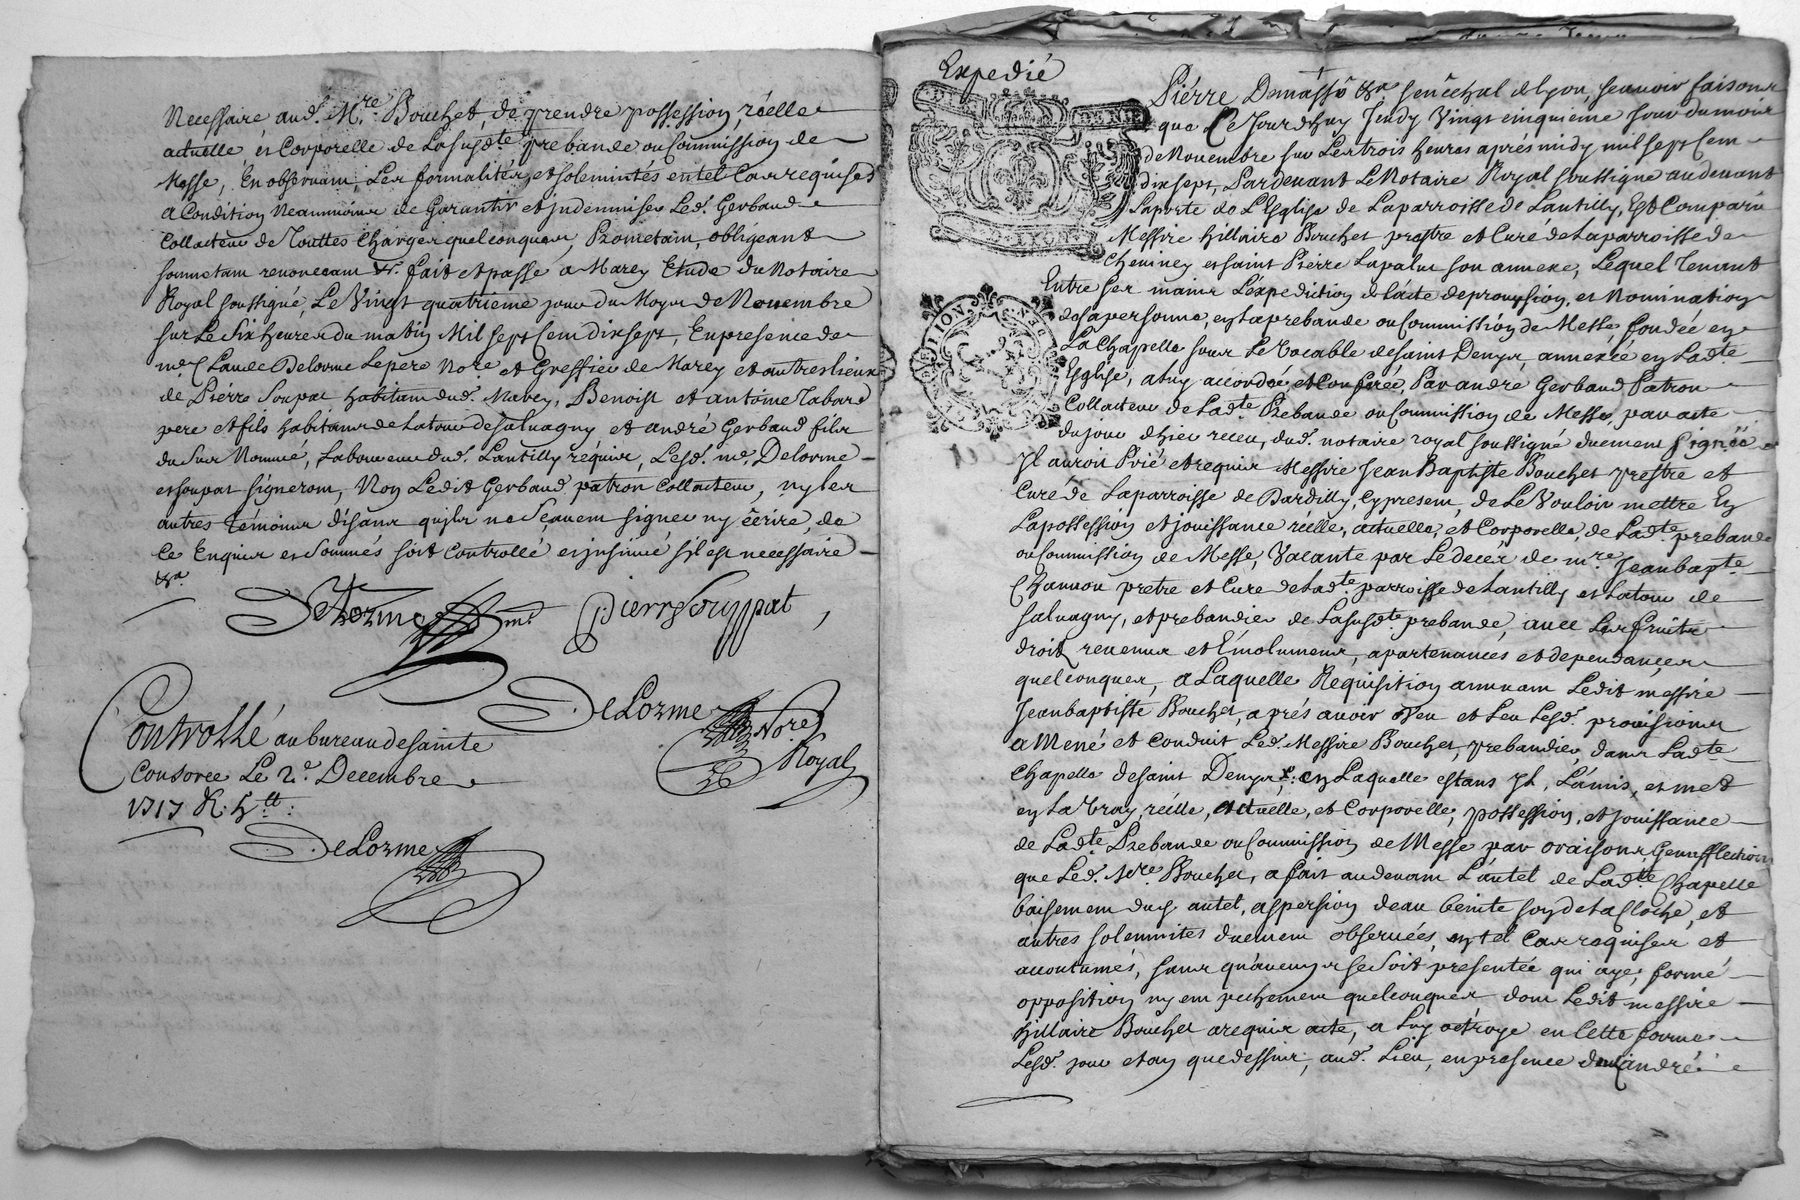 Necessaire aud. Mre. Bouchet, de prendre possession, réelle
actuelle et Corporelle de Lasusdte prebande ou Commission de
Messe, En observant, Les formalités, et solemnités en tel Cas requises
a Condition Neanmoins de Garantir et jndemniser Led. Gerbaud
Collateur de Touttes Charges quelconques, Prometant, obligeant
soumetant renonceant &a. fait et passé a Marcy Etude du Notaire
Royal soussigné, Le Vingt quatrieme jour du Moys de Novembre
sur Le Six heures du matin Mil sept Cent Dix sept, En presence de
me Claude Delorme Lepere Nore et Greffier de Marcy et autres lieux
de Pierre Soupat habitant dud. Marcy, Benoist et antoine Tabard
pere et fils habitans de Latour de Salvagny et andré Gerbaud fils
du Sus Nommé, Laboureur dud. Lantilly réquis, Lesd. me Delorme
et soupat signeront, Non Ledit Gerbaud patron Collateur, ny les
autres Témoins disans qu'ils ne Sçavent signer ny écrire, de
Ce Enquis et Sommés soit Controllé et jnsinué s'il est necessaire
&a
DeLorme Pierre Souppat
DeLorme Nore
Royal
Controllé au bureau de sainte
Consorce Le 2e. Decembre
1717 R. h tt:
DeLorme
Expedié
Pierre Demasso &a senéchal de Lyon, sçavoir faisons
que Ce Jourdhuy Jeudy Vingt cinquieme jour du mois
de Novembre sur Les trois heures aprés midy mil sept Cent
dix sept, Pardevant Le Notaire Royal soussigné audevant
Laporte de L'Eglise de Laparroisse de Lantilly, Est Comparu
Messire hillaire Bouchet prestre et Curé de Laparroisse de
Cheviney et saint Pierre Lapalud son annexe, Lequel Tenant
Entre ses mains L'expedition de l'acte de provision, et Nomination
de sa personne, en Laprebande ou Commission de Messe, fondée en
La Chapelle sous Le Vocable de saint Denys annexée en Ladte
Esglise, a luy accordée et Conferée Par andré Gerbaud Patron
Collateur de Ladte Prebande ou Commission de Messe, par acte
du jour d'hier receu, dud. notaire royal soussigné duement Signée
Jl auroit Prié et requis Messire Jean Baptiste Bouchet prestre et
Curé de Laparroisse de Dardilly, Cy present, de Le Vouloir mettre En
Lapossession et jouissance réelle, actuelle, et Corporelle, de Ladte. prebande
ou Commission de Messe, Vacante par Lédeces de mre. Jean bapte
Chanrou pretre et Curé de Ladte parroisse de Lantilly et Latour de
salvagny, et prebandier de Lasusdte prebande, avec Les fruits
droits revenus et Emolumens, apartenances et dependances
quelconques, a Laquelle Requisition annuant Ledit messire
Jean baptiste Bouchet, aprés avoir Veu et Leu Lesd. provisions
a Mené et Conduit Led. Messire Bouchet, prebandier, dans Ladte
Chapelle de saint Denys, en Laquelle estans Jl, L'a mis, et met
en La Vray, réelle, actuelle, et Corporelle, possession, et jouissance
de Ladte Prebande ou Commission de Messe par oraisons, Genufflection
que Led. Mre. Bouchet, a fait audevant L'autel de Ladte Chapelle
baisement dud. autel, aspersion deau benite son de La Cloche, et
autres solemnites duement observées en tel Cas requises et
accoutumés, sans qu'aucuns se soit presentée qui aye, formé
opposition ny empechement quelconques dont Ledit messire
hillaire Bouchet a requis acte, a Luy octroye en Cette forme
Lesd. jour et an que dessus, aud. Lieu, en presence dud. andré